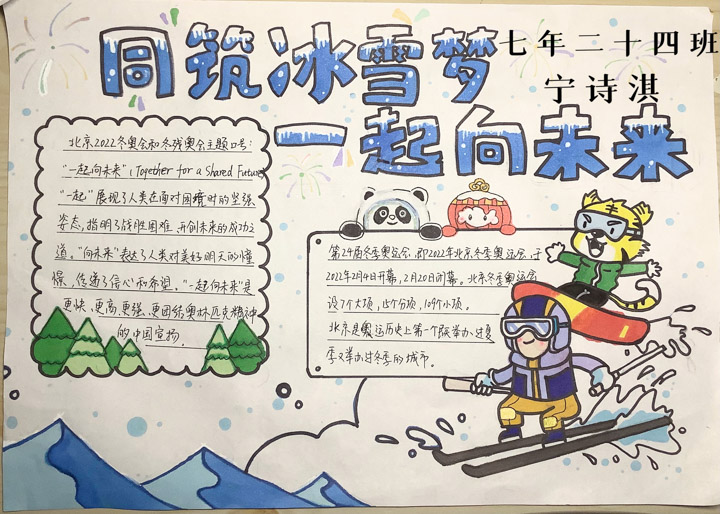 同筑冰雪梦
一起向未来
七年二十四班
宁诗淇
北京2022冬奥会和冬残奥会主题口号：
“一起向未来”（Together for a Shared Future
“一起”展现了人类在面对困境时的坚强
姿态，指明了战胜困难，开创未来的成功之
道。“向未来”表达了人类对美好明天的憧
憬，传递了信心和希望。“一起向未来”是
更快、更高、更强、更团结奥林匹克精神
的中国宣扬。
第24届冬季奥运会，即2022年北京冬季奥运会，于
2022年2月4日开幕，2月20日闭幕。北京冬季奥运会
设7个大项，15个分项，109个小项。
北京是奥运历史上第一个举办过夏
季又举办过冬季的城市。